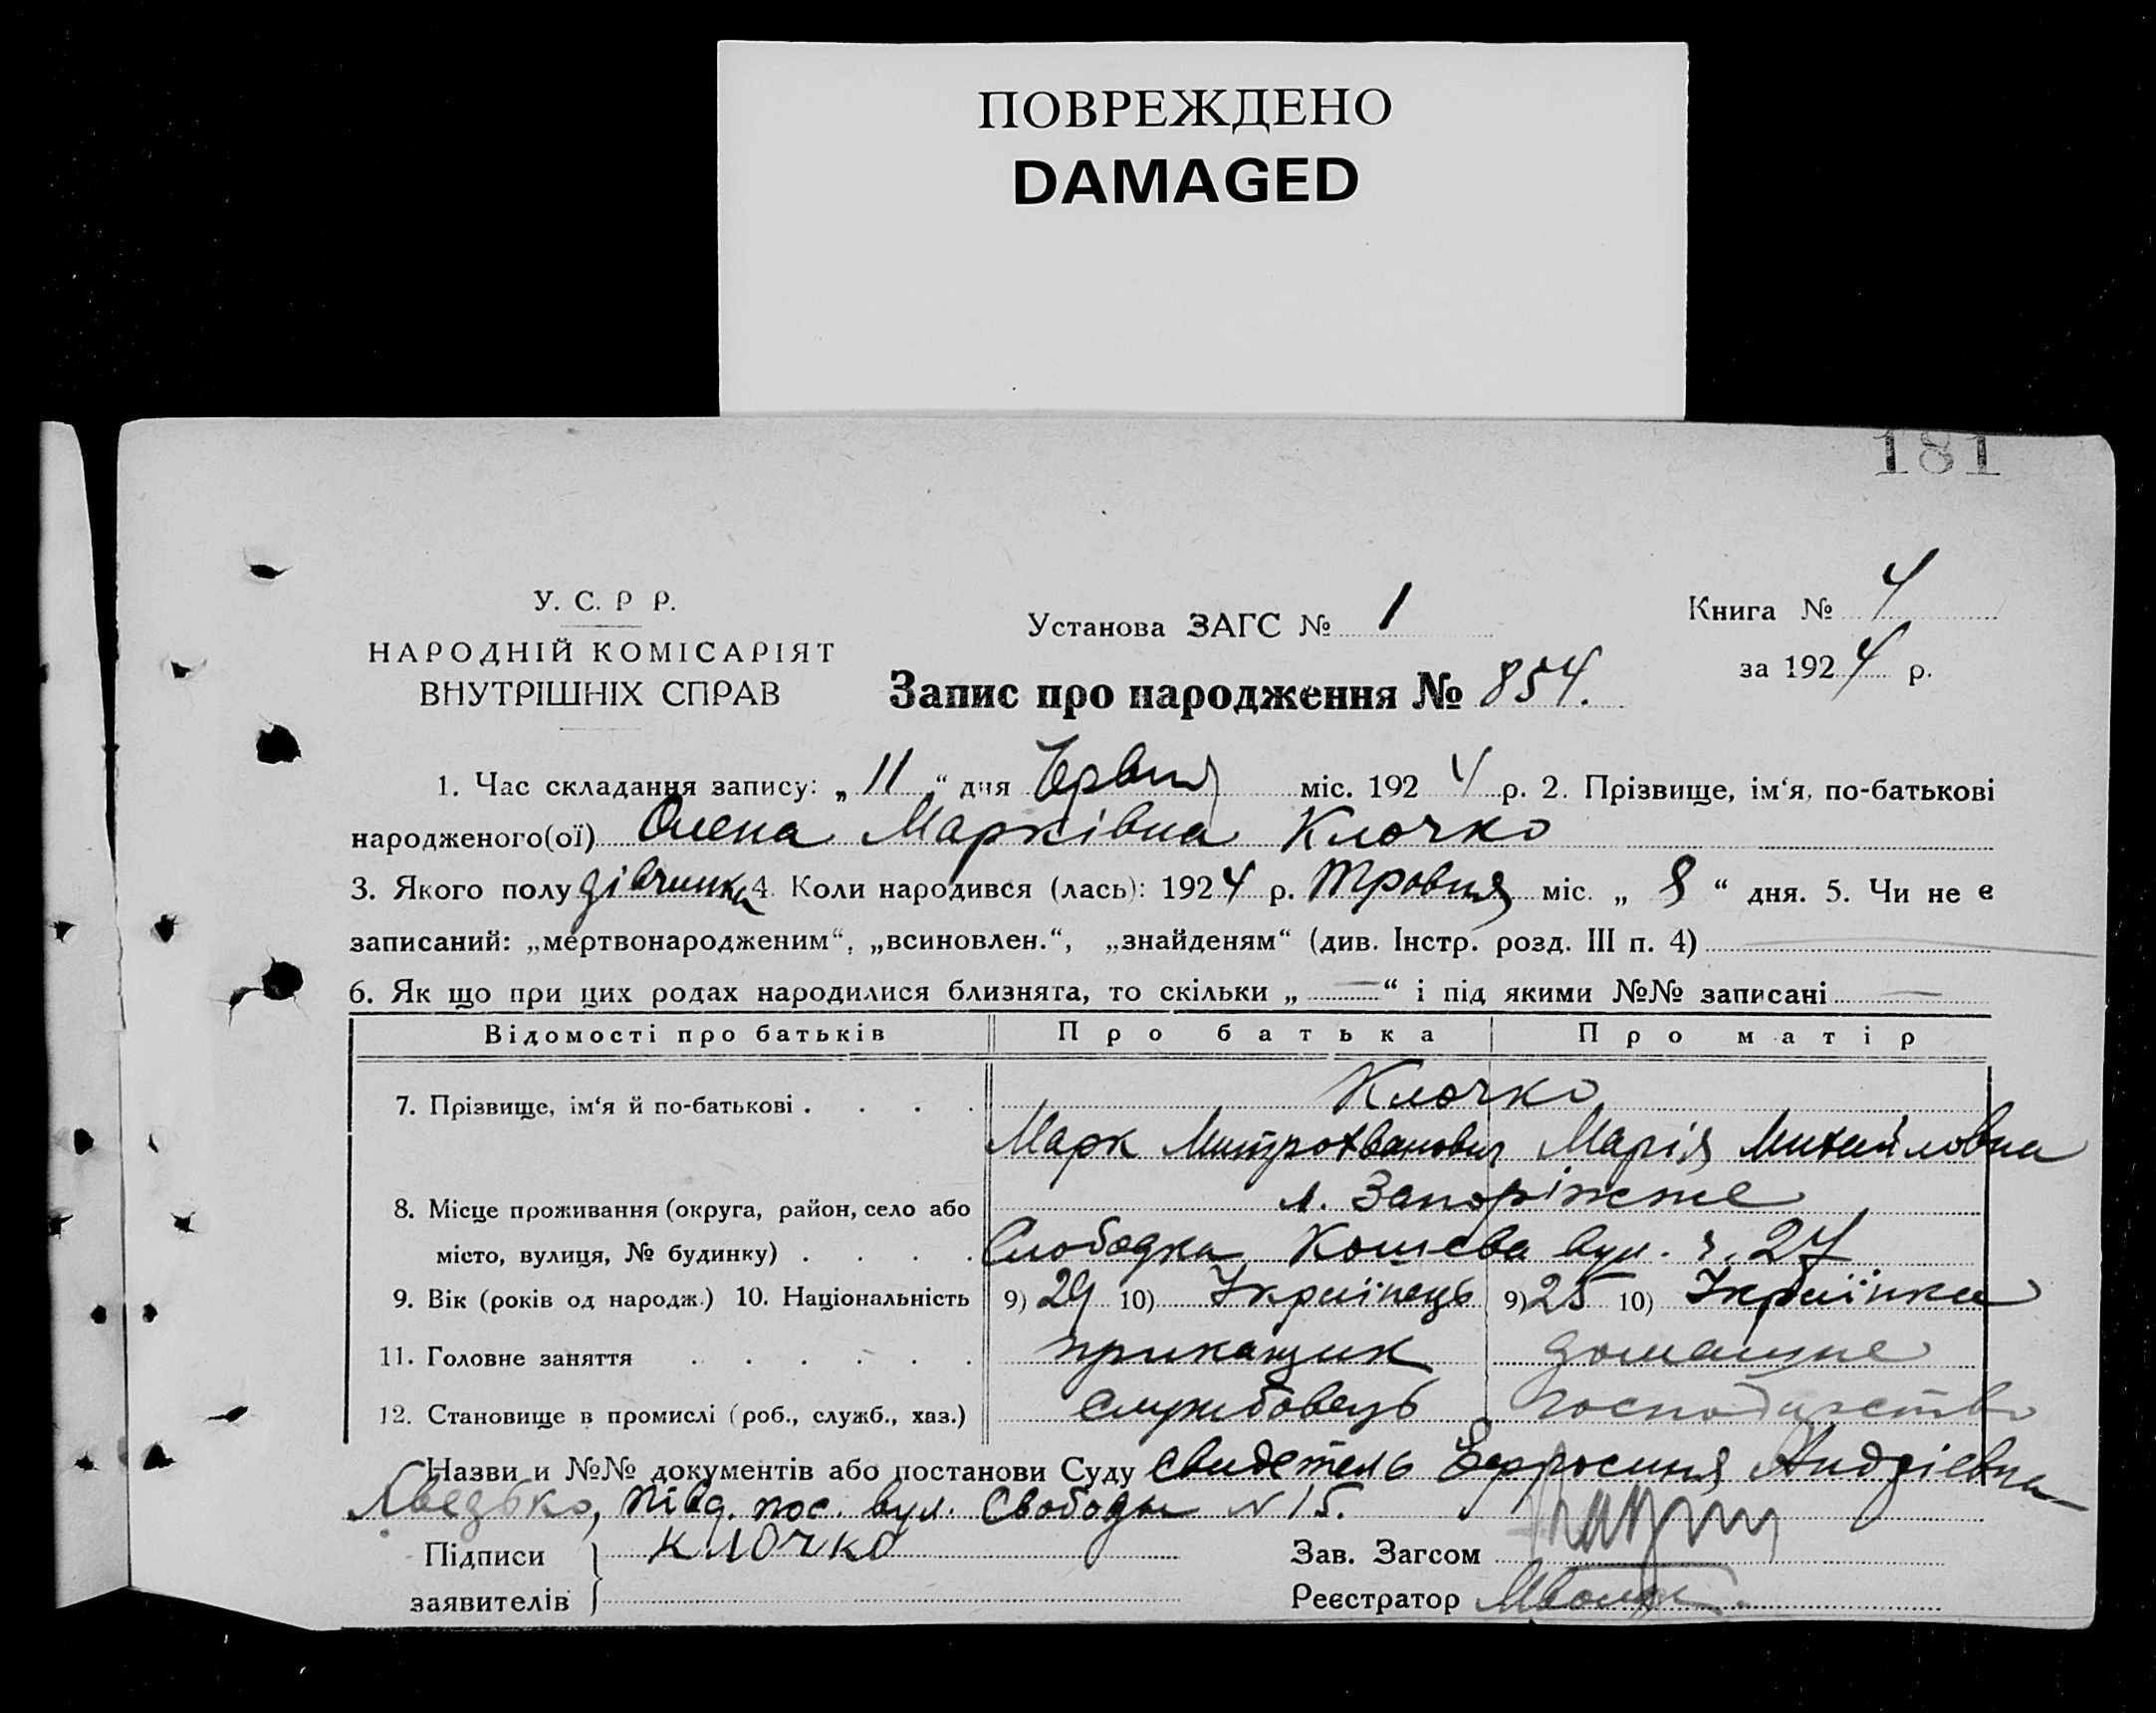 ПОВРЕЖДЕНО
DAMAGED
181
У. С. Р Р.
НАРОДНІЙ КОМІСАРІЯТ
ВНУТРІШНІХ СПРАВ
Установа ЗАГС № 1
Запис про народження № 854.
Книга № 4
за 1924 р.
1. Час складання запису: „ 11 “ дня Ервня міс. 1924 р. 2. Прізвище, ім‘я, по-батькові
народженого(ої) Олена Марківна Клочко
3. Якого полу дівчинка 4. Коли народився (лась): 1924 р. Тровня міс. „ 8 “ дня. 5. Чи не є
записаний: „мертвонародженим“, „всиновлен.“, „знайденям“ (див. Інстр. розд. III п. 4)
6. Як що при цих родах народилися близнята, то скільки „ — “ і під якими №№ записані —
Відомості про батьків Про батька Про матір
7. Прізвище, ім‘я й по-батькові . . . . Клочко
Марк Митрохванович Марія Михайловна
8. Місце проживання (округа, район, село або м. Запоріжже
місто, вулиця, № будинку) . . . . Слободка Кошева вул. ч. 27
9. Вік (років од народж.) 10. Національність 9) 29 10) Українець 9) 25 10) Українка
11. Головне заняття . . . . . . прикащик домашне
12. Становище в промислі (роб., служб., хаз.) службовець господарство
Назви и №№ документів або постанови Суду свидетель Ефросиния Андріевна
Лведько, півд. пос. вул. Свободы N 15.
Підписи клочко
заявителів
Зав. Загсом
Реєстратор